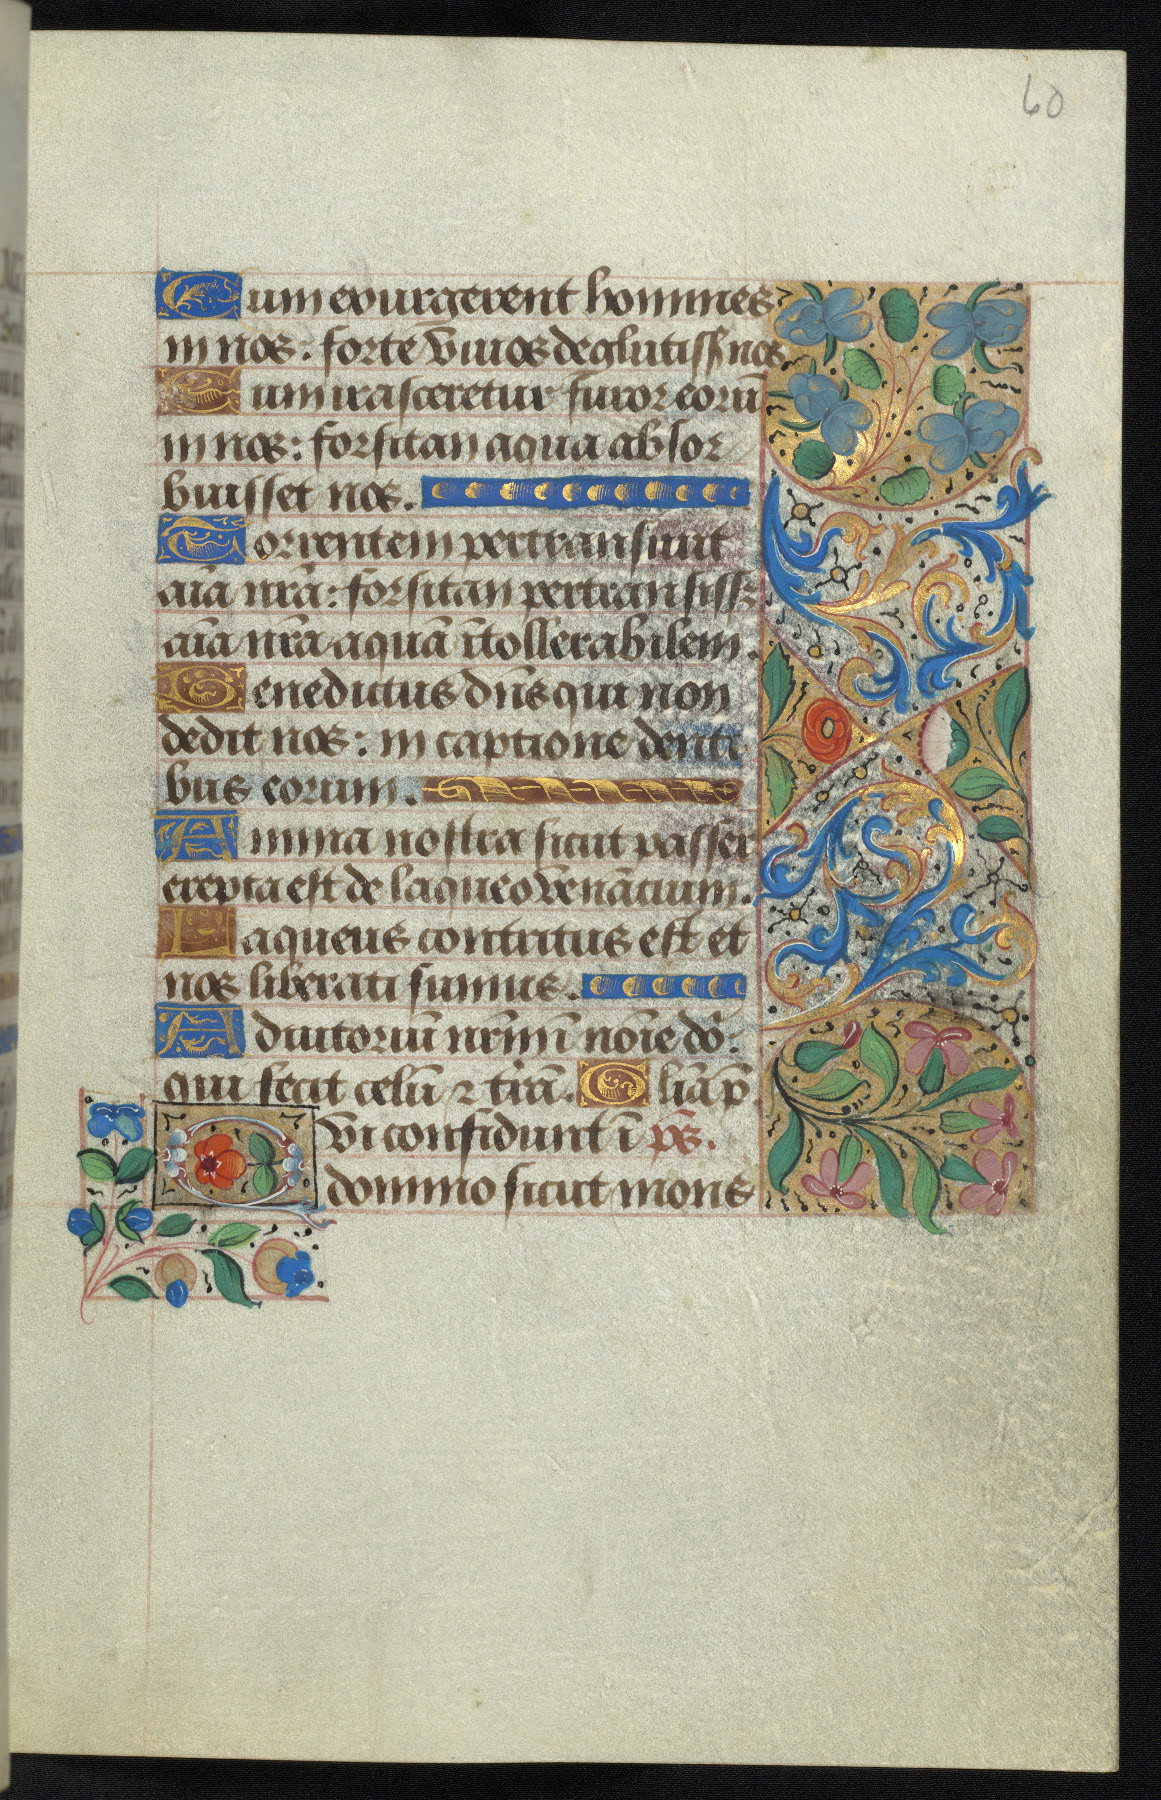 60
Cum exurgerent homines
in nos: forte viuos deglutiss̃ nos
Cum irasceretur furor eorũ
in nos: forsitan aqua absor
buisset nos.
Torrentem pertransiuit
aĩa nrã: forsitan pertransiss;
aĩa nrã aquã ĩtollerabilem.
Benedictus dñs qui non
dedit nos: in captione denti
bus eorum.
Anima nostra sicut passer
erepta est de laqueo venãcium.
Laqueus contritus est et
nos liberati sumus.
Adiutoriũ nrm̃ ĩ noĩe dõ.
qui fecit celũ ⁊ trã. Glĩa p̃
Qui confidunt ĩ p̃s.
domino sicut mons